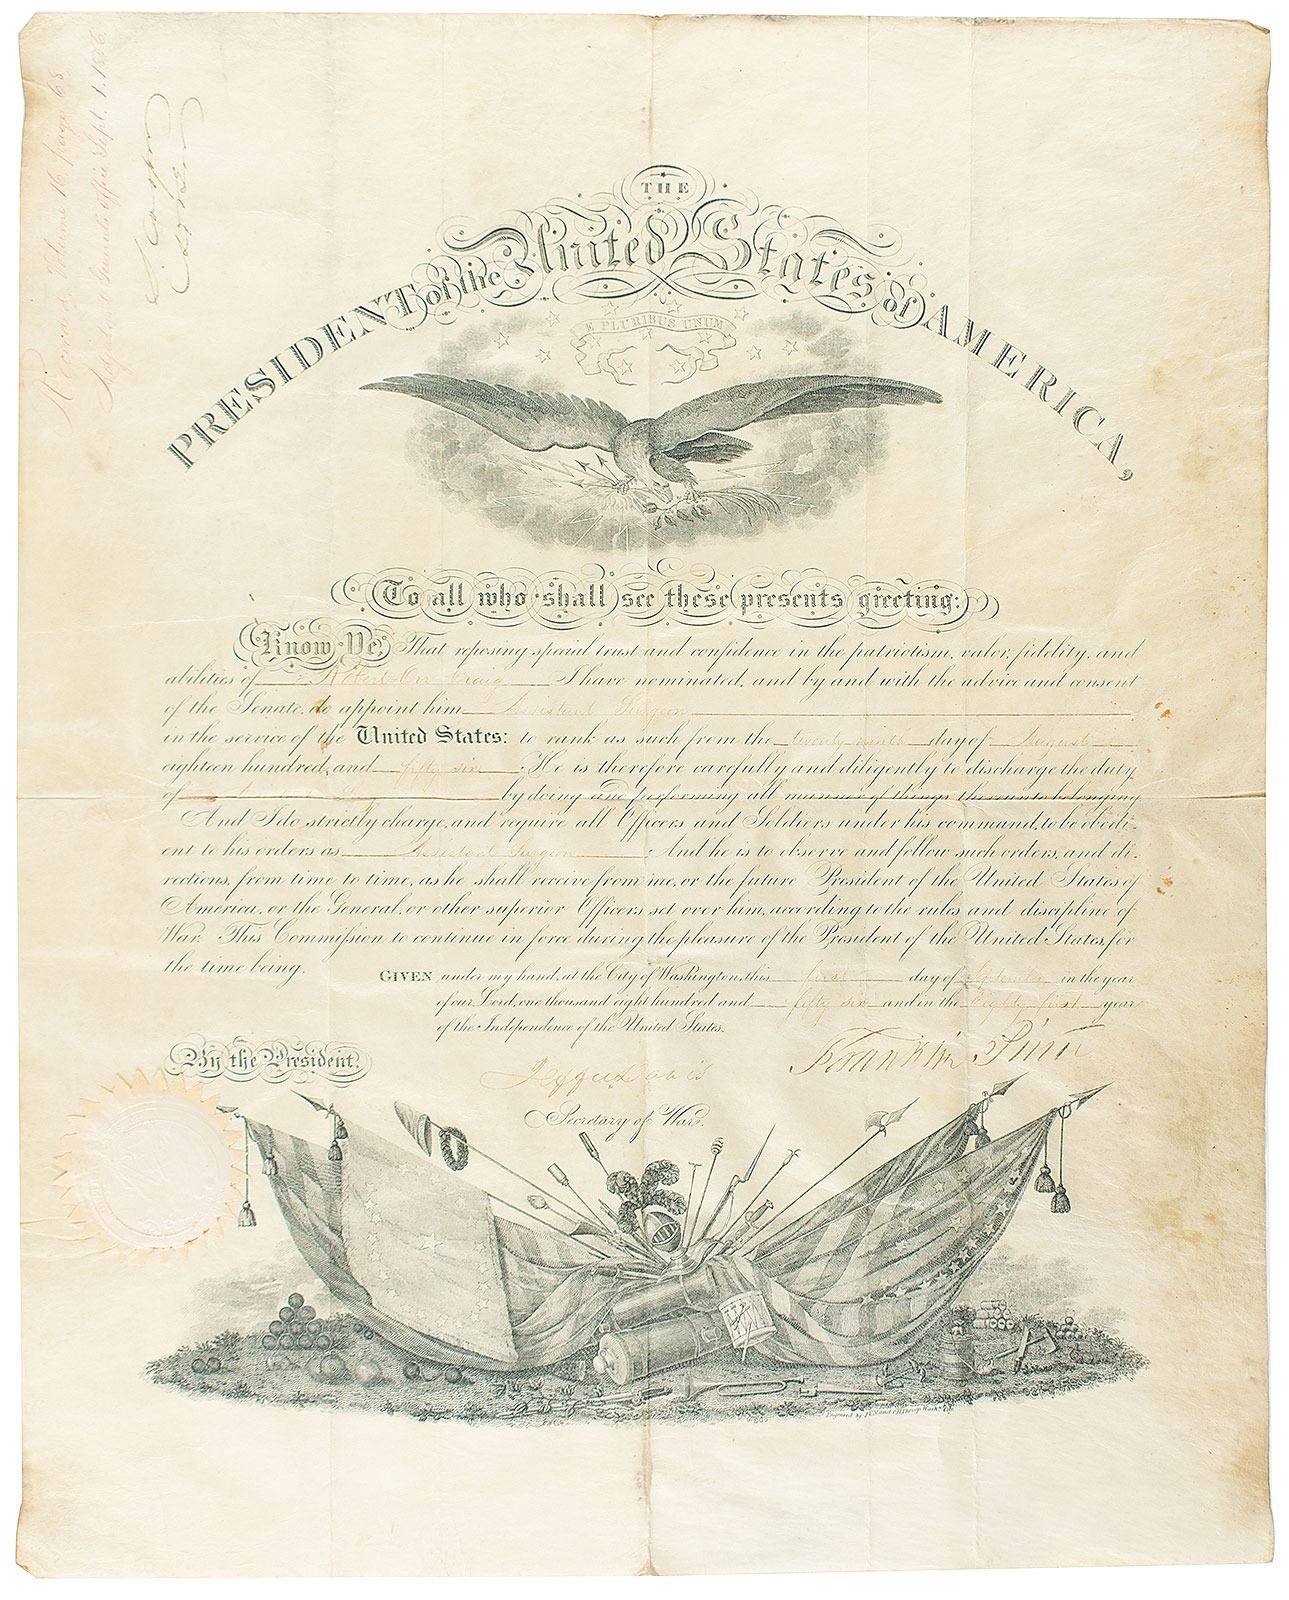 THE
PRESIDENT of the United States of AMERICA,
E PLURIBUS UNUM
To all who shall see these presents greeting:
Know Ye, That reposing special trust and confidence in the patriotism, valor, fidelity, and
abilities of Robert Orr Craig I have nominated, and by and with the advice and consent
of the Senate, do appoint him Assistant Surgeon
in the service of the United States: to rank as such from the twenty ninth day of August
eighteen hundred, and fifty six He is therefore carefully and diligently to discharge the duty
of by doing and performing all manner of things thereunto belonging
And I do strictly charge, and require all Officers and Soldiers under his command, to be obedi-
ent to his orders as Assistant Surgeon And he is to observe and follow such orders, and di-
rections, from time to time, as he shall receive from me, or the future President of the United States of
America, or the General, or other superior Officers set over him, according to the rules and discipline of
War. This Commission to continue in force during the pleasure of the President of the United States, for
the time being.
GIVEN under my hand, at the City of Washington, this first day of September in the year
of our Lord, one thousand eight hundred and fifty six and in the Eighty first year
of the Independence of the United States.
By the President,
Franklin Pierce
Jeffn Davis
Secretary of War.
Record Volume 16 page 65
Adjutant General's Office Sept. 1. 1856.
S. Cooper